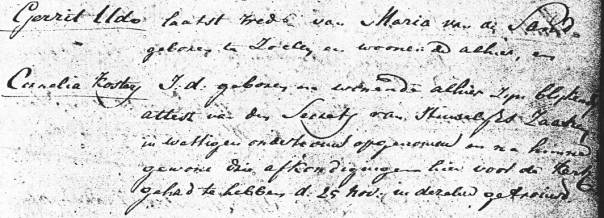 Gerrit Udo laatst wedr. van Maria van de Sand
geboren te Zoelen en woonende alhier, en
Cornelia Kosters J.d. geboren en wonende alhier zijn blijkens
attest van den Secrets. van Huwelijks Zaaken
in wettigen ondertrouw opgenomen en na hunne
gewone drie afkondigingen hier voor de Kerk
gehad te hebben d. 25 Nov. in dezelve getrouwd